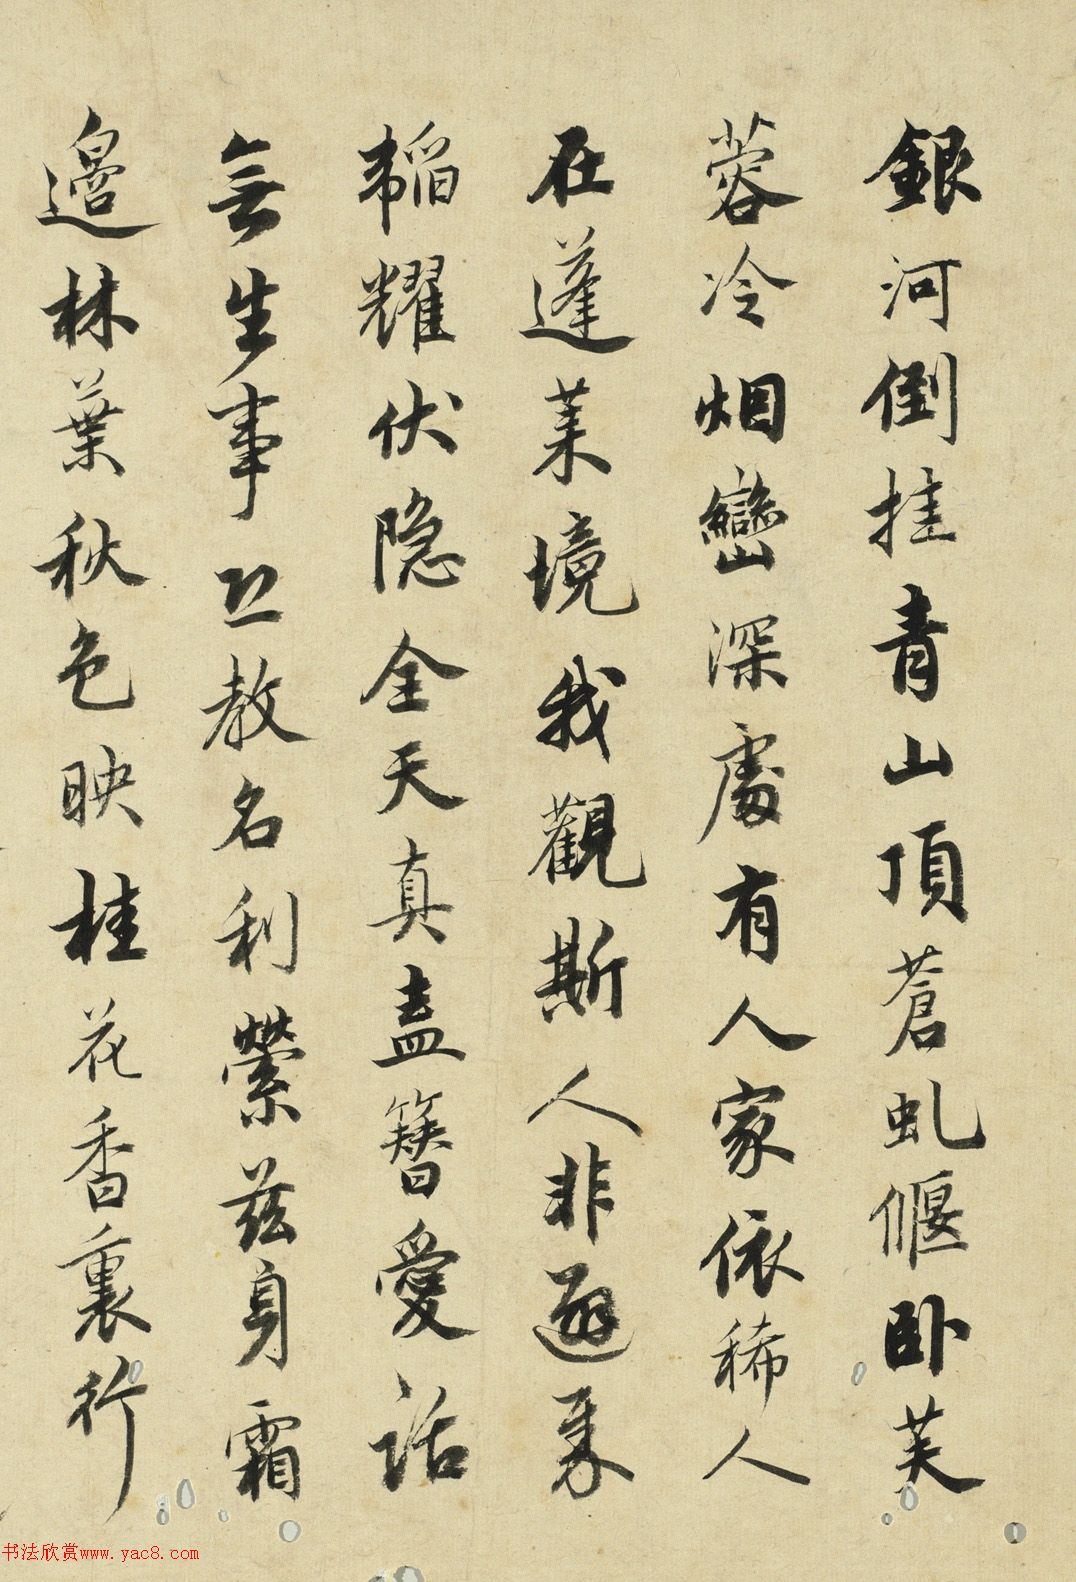 銀河倒挂青山頂蒼虬偃卧芙
蓉冷烟巒深處有人家依稀人
在蓬莱境我觀斯人非
韜耀伏隐全天真盍簪愛話
無生事教名利縈兹身霜
邉林葉秋色映桂花香裏行
书法欣赏www.yac8.com